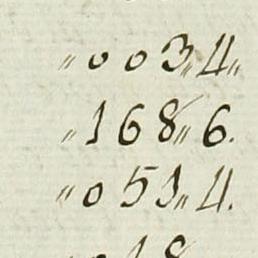 „003„4„
„168„6.
„051„4.